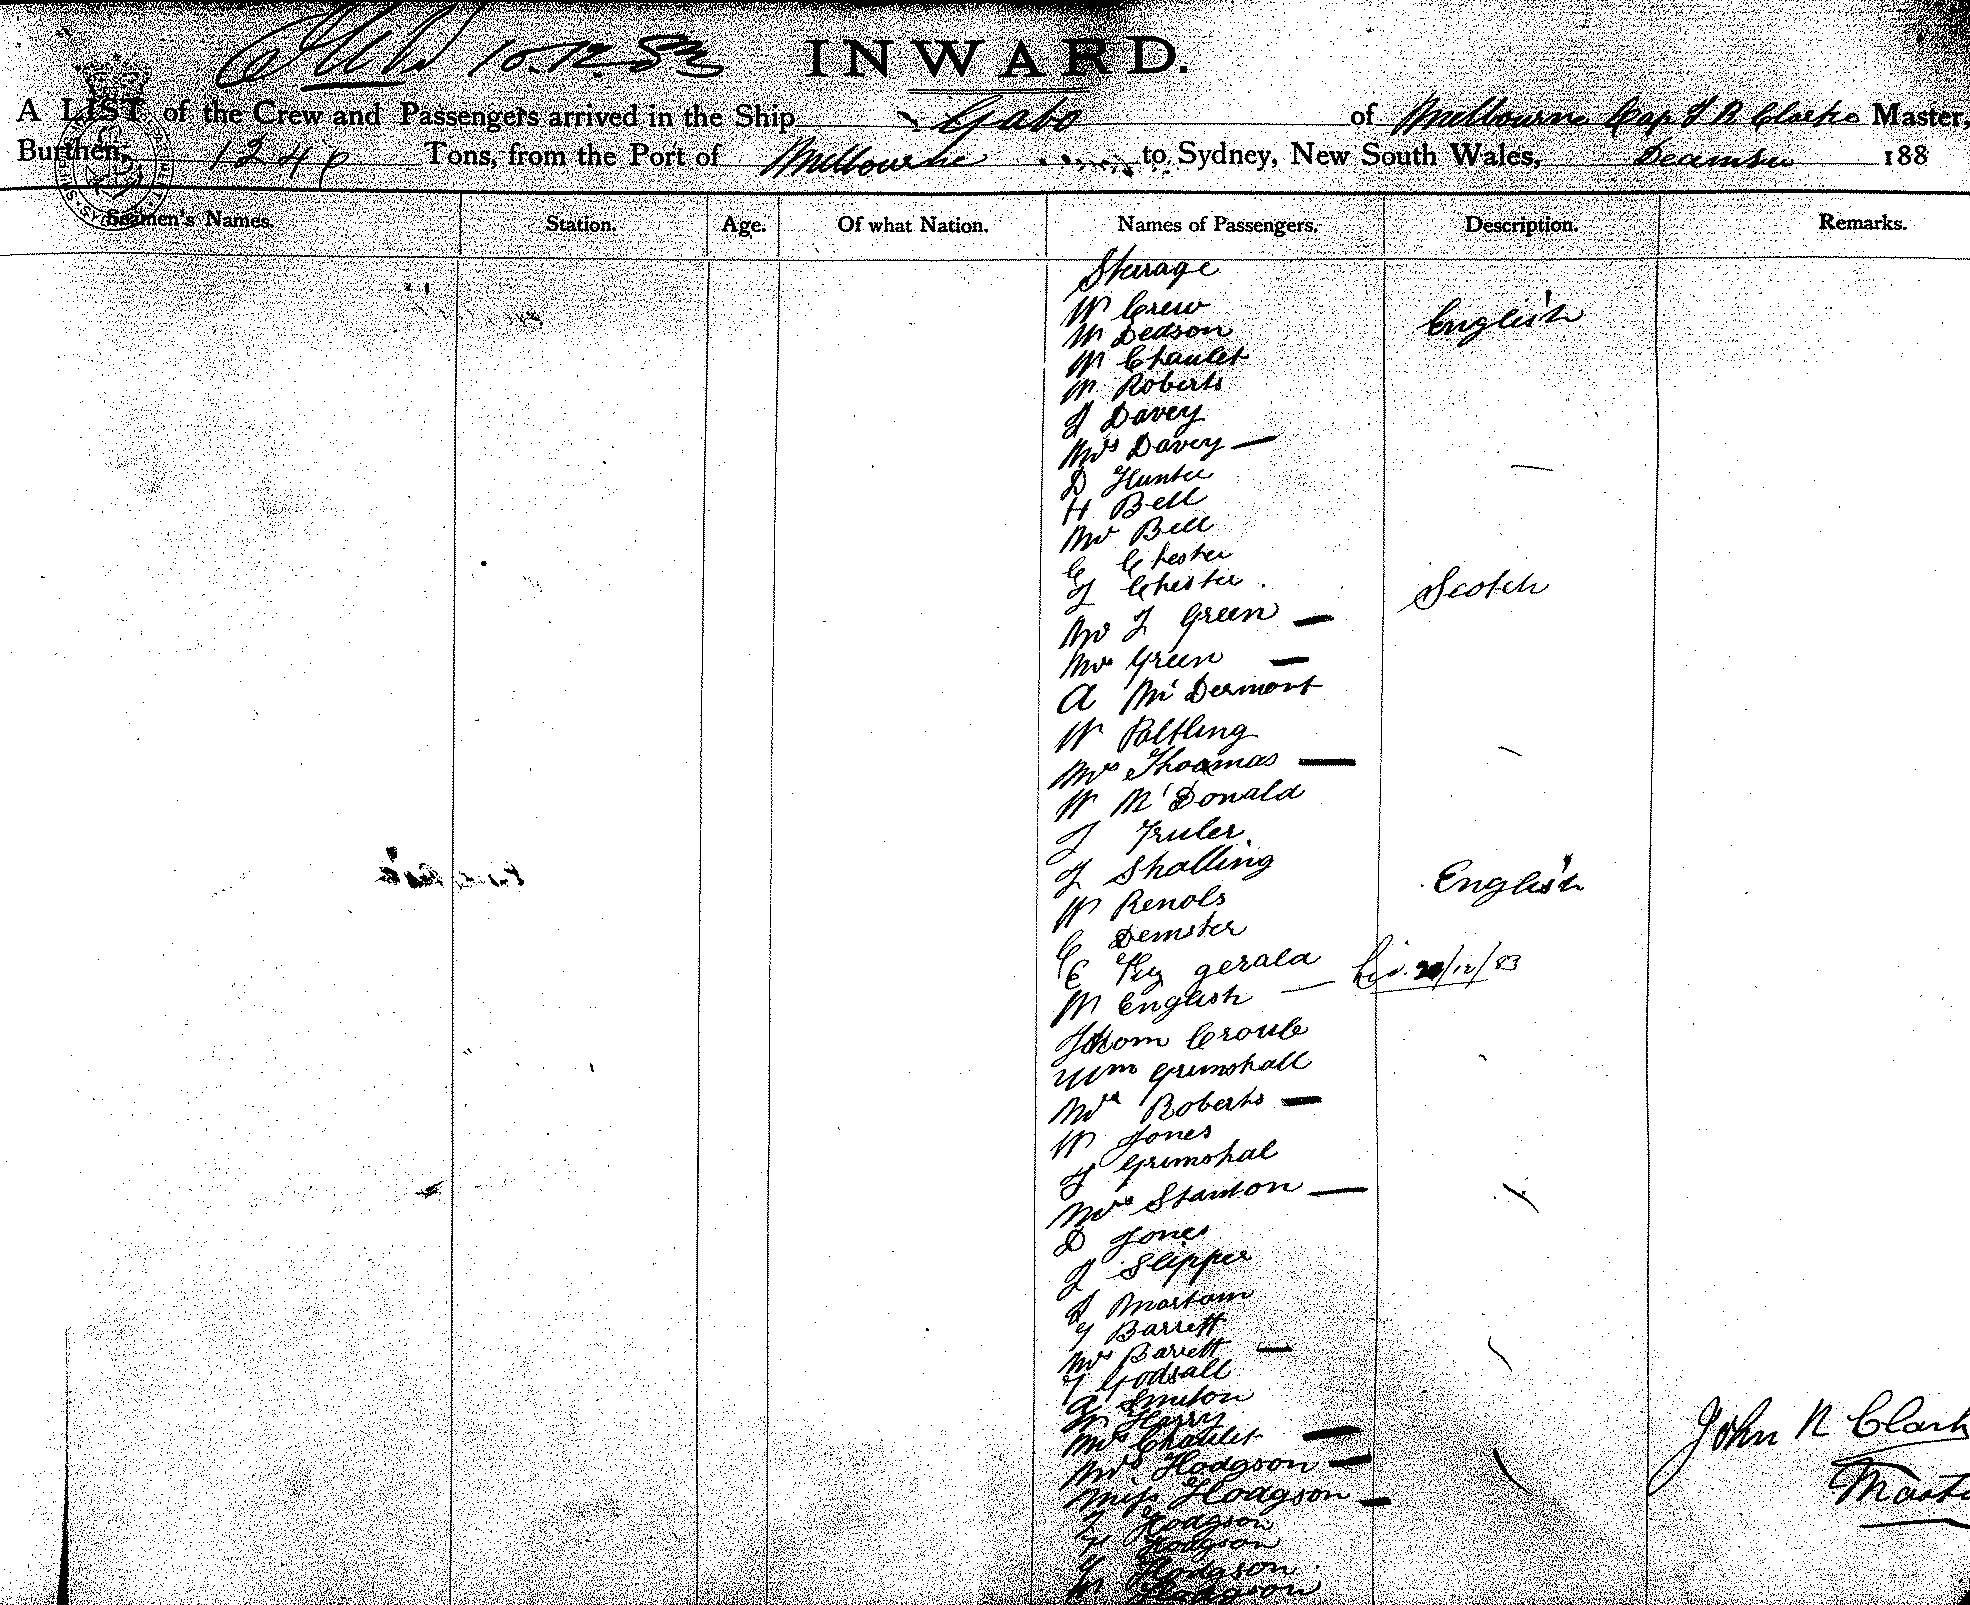 10.12.83 INWARD.
A LIST of the Crew and Passengers arrived in the Ship Gabo of Melbourne Cap J R Clarke Master,
Burthen, Tons, from the Port of Melbourne to Sydney, New South Wales, 188
Seamen's Names. Station. Age. Of what Nation. Names of Passengers. Description. Remarks.
Sterage
W Crew English
W Dedson
W Chaulet
W Roberts
J Davey
Mrs Davey —
D Hunter
H Bell
Mr Bell
C Chester
J Chester Scotch
Mr J Green —
Mrs Green —
A McDermont
W Paltling
Mrs Thoamas —
W McDonald
J Fruler
J Shalling English
W Renols
C Demster
E Fitz gerald 12/83
W English
Croule
Wm Grimshall
Mrs Roberts —
W Jones
J Grimshal
Mrs Stanton —
D Jones
J Slipper
J Martom
J Barrett
Mrs Barrett —
Y Godsall
A Smeton
W Harry
Mrs Chaulet —
Mrs Hodgson —
Miss Hodgson —
Hodgson
Hodgson
Hodgson
Hodgson
John R Clark